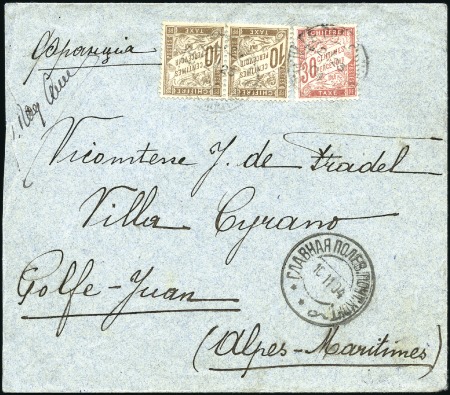 Франція
10 CENTIMES À PERCEVOIR
CHIFFRE TAXE
10 CENTIMES À PERCEVOIR
CHIFFRE TAXE
30 CENTIMES À PERCEVOIR
CHIFFRE TAXE
Vicomtesse J. de Pradel
Villa Cyrano
Golfe-Juan
(Alpes-Maritimes)
ГЛАВНАЯ ПОЛЕВ. ПОЧТ. КОНТ.
11 04